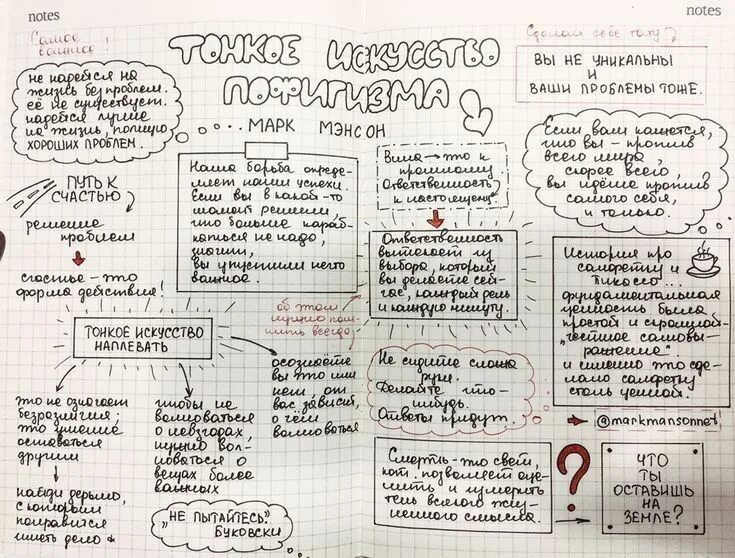 notes
notes
Самое
важное!
Сделай себе тату
ТОНКОЕ ИСКУССТВО
ПОФИГИЗМА
МАРК МЭНСОН
не надейся на
жизнь без проблем.
её не существует.
надейся лучше
на жизнь, полную
ХОРОШИХ ПРОБЛЕМ.
ПУТЬ К
СЧАСТЬЮ
решение
проблем
счастье – это
форма действия!
Наша борьба опреде-
ляет наши успехи.
Если вы в какой-то
момент решили,
что больше караб-
каться не надо,
значит,
вы упустили нечто
важное.
Вина → это к
прошлому
Ответственность
к настоящему
ВЫ НЕ УНИКАЛЬНЫ
И
ВАШИ ПРОБЛЕМЫ ТОЖЕ.
Если вам кажется,
что вы – против
всего мира,
скорее всего,
вы идёте против
самого себя,
и только.
Ответственность
вытекает из
выбора, который
вы делаете сей-
час, каждый день
и каждую минуту.
об этом
нужно пом-
нить всегда
История про
салфетку и
Пикассо...
фундаментальная
ценность была
простой и скромной –
"честное самовы-
ражение".
и именно это сде-
лало салфетку
столь ценной.
@markmansonnet
ТОНКОЕ ИСКУССТВО
НАПЛЕВАТЬ
это не означает
безразличия;
это умение
оставаться
другим
найди дерьмо,
с которым
понравится
иметь дело
чтобы не
волноваться
о невзгодах,
нужно вол-
новаться о
вещах более
важных
осознаёте
вы это или
нет, от
вас зависит,
о чём
волноваться
„НЕ ПЫТАЙТЕСЬ"
БУКОВСКИ
Не сидите сложа
руки.
Делайте что-
нибудь.
Ответы придут.
Смерть – это свет,
кот. позволяет оце-
нить и измерить
тень всякого жиз-
ненного смысла.
?
ЧТО
ТЫ
ОСТАВИШЬ
НА
ЗЕМЛЕ?